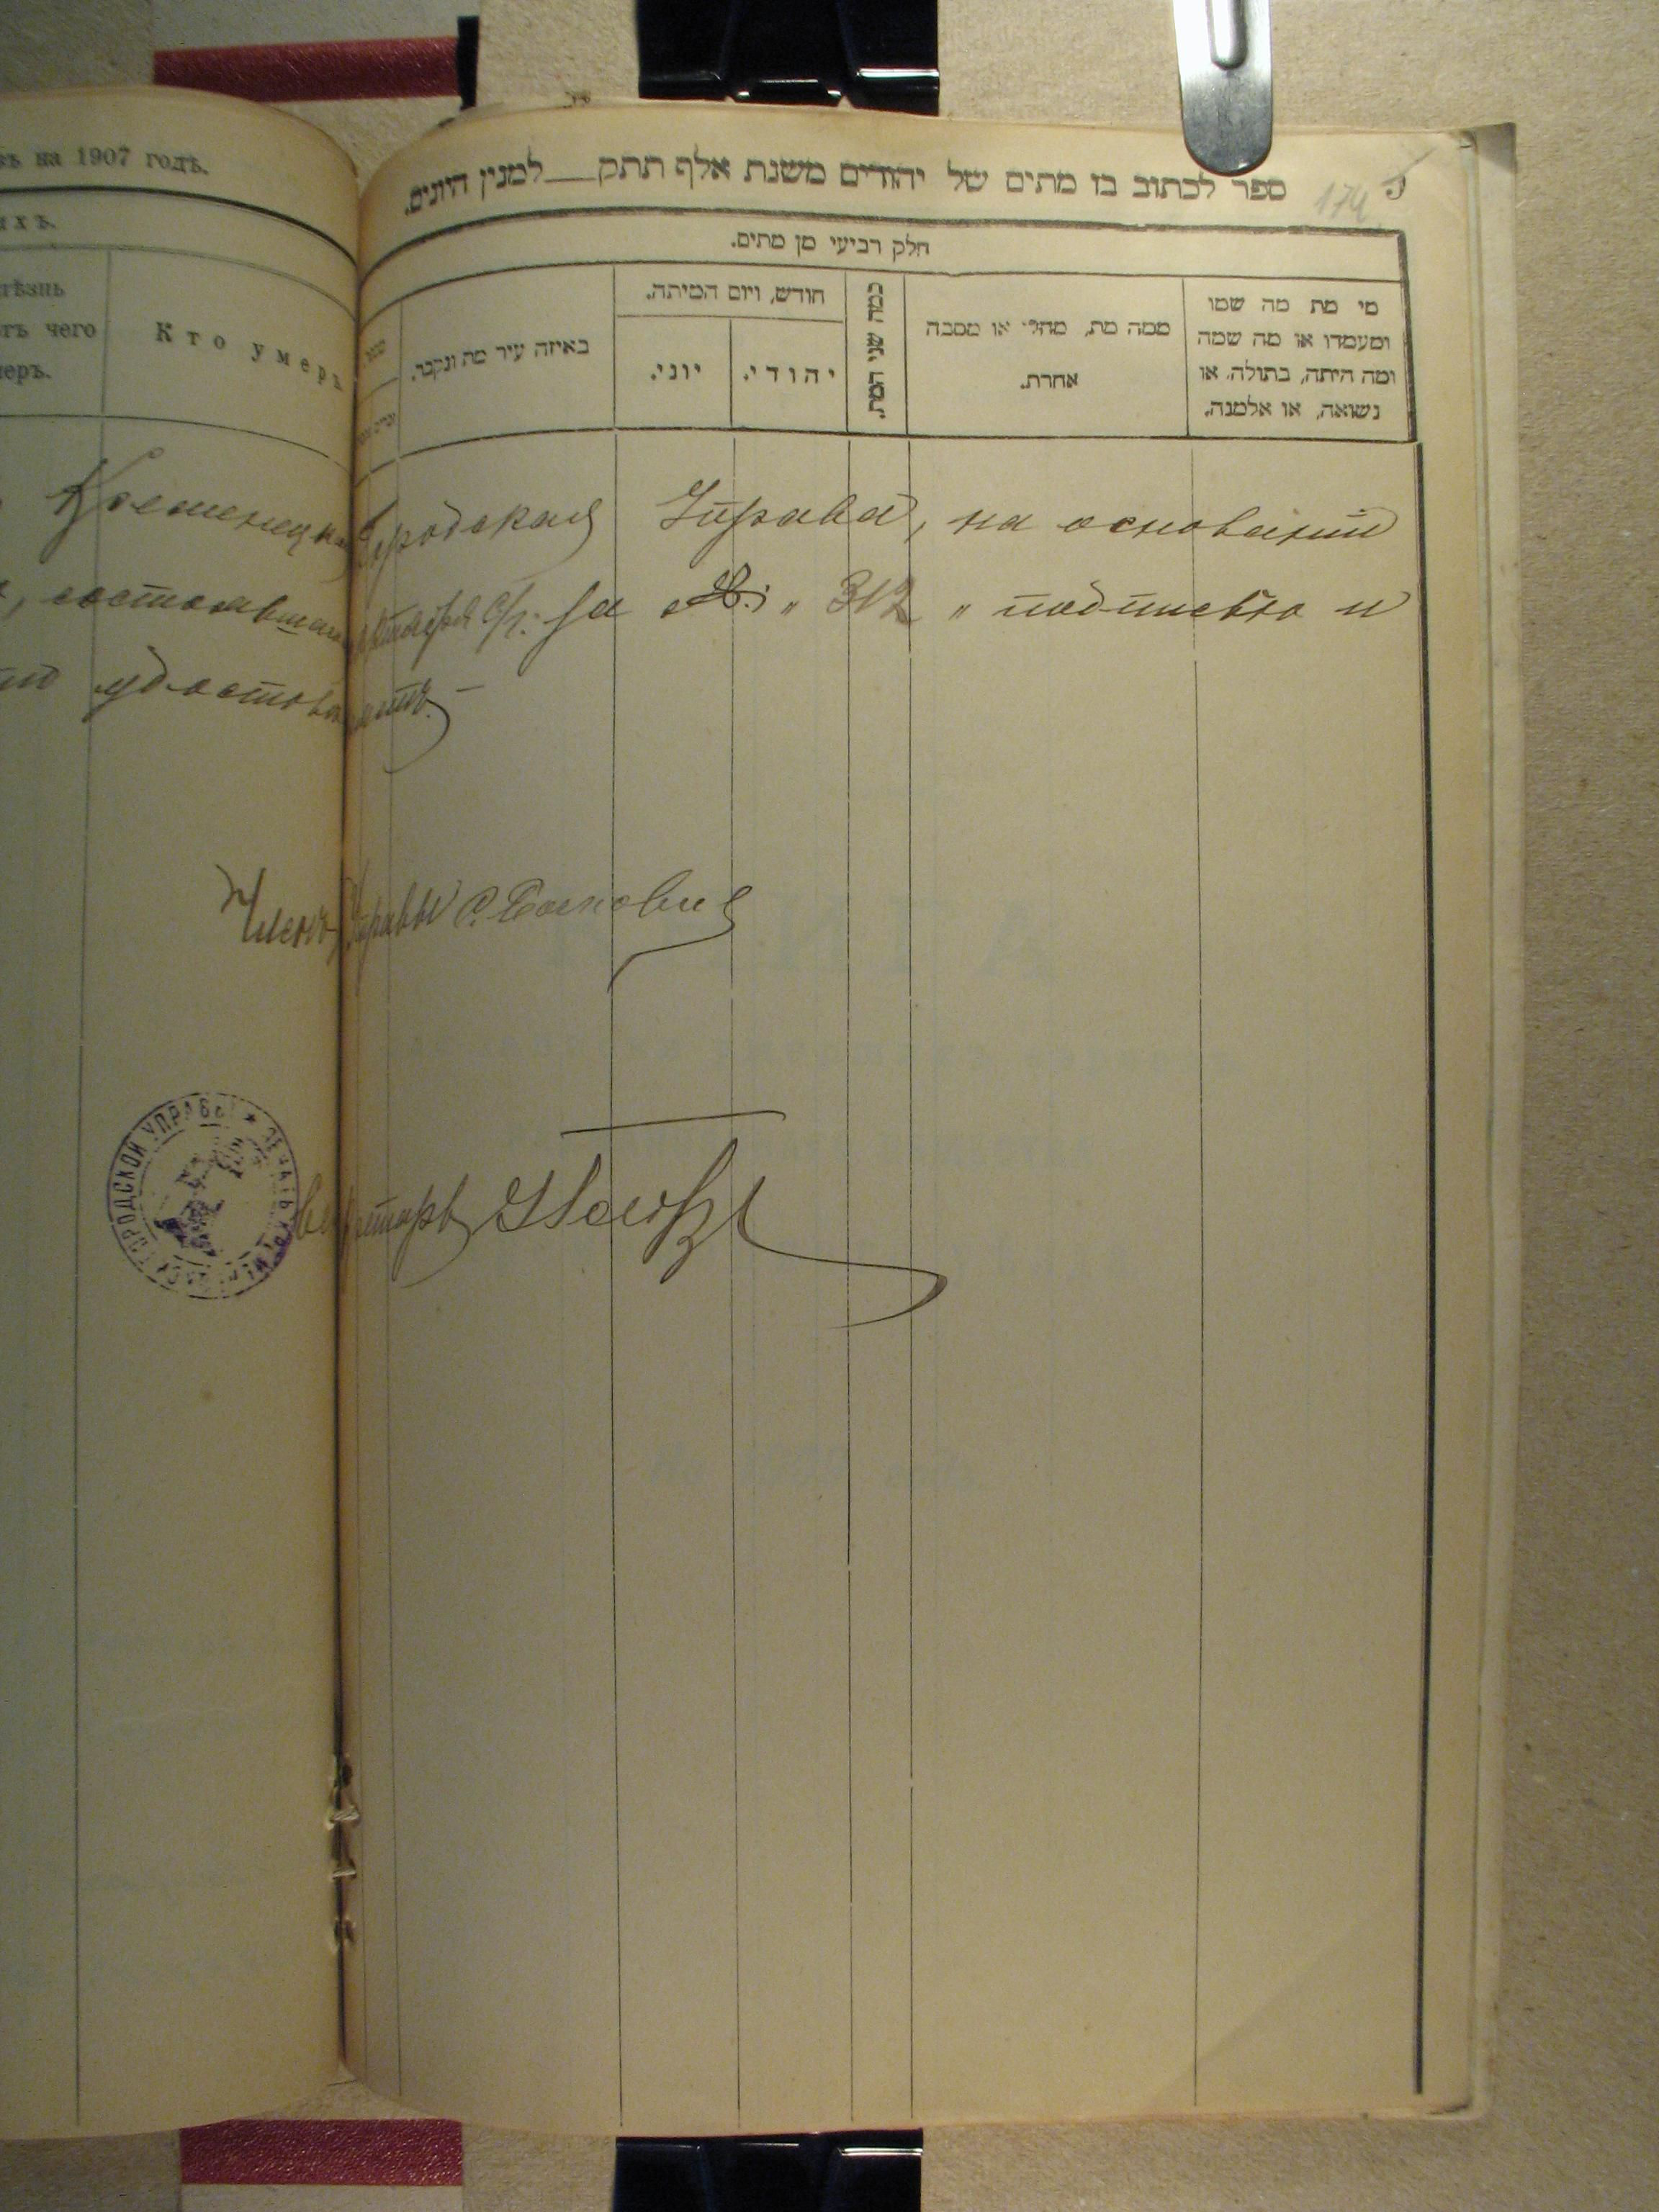 въ на 1907 годъ.
ыхъ.
чего
меръ.
Кто умеръ
ספר לכתוב בו מתים של יהודים משנת אלף תתק__למנין היונים.
174
חלק רביעי מן מתים.
באיזה עיר מת ונקבר.
חודש, ויום המיתה.
יוני.
יהודי.
כמה שני המת.
ממה מת, מחלי או מסבה
אחרת.
מי מת מה שמו
ומעמדו או מה שמה
ומה היתה, בתולה, או
נשואה, או אלמנה.
Кременецкая Городская Управа, на основании
состоявшагося октября с/г. за № „ 312 „ подписью и
удостоверяетъ.
Членъ Управы
ГОРОДСКОЙ УПРАВЫ * ПЕЧАТЬ
Секретарь